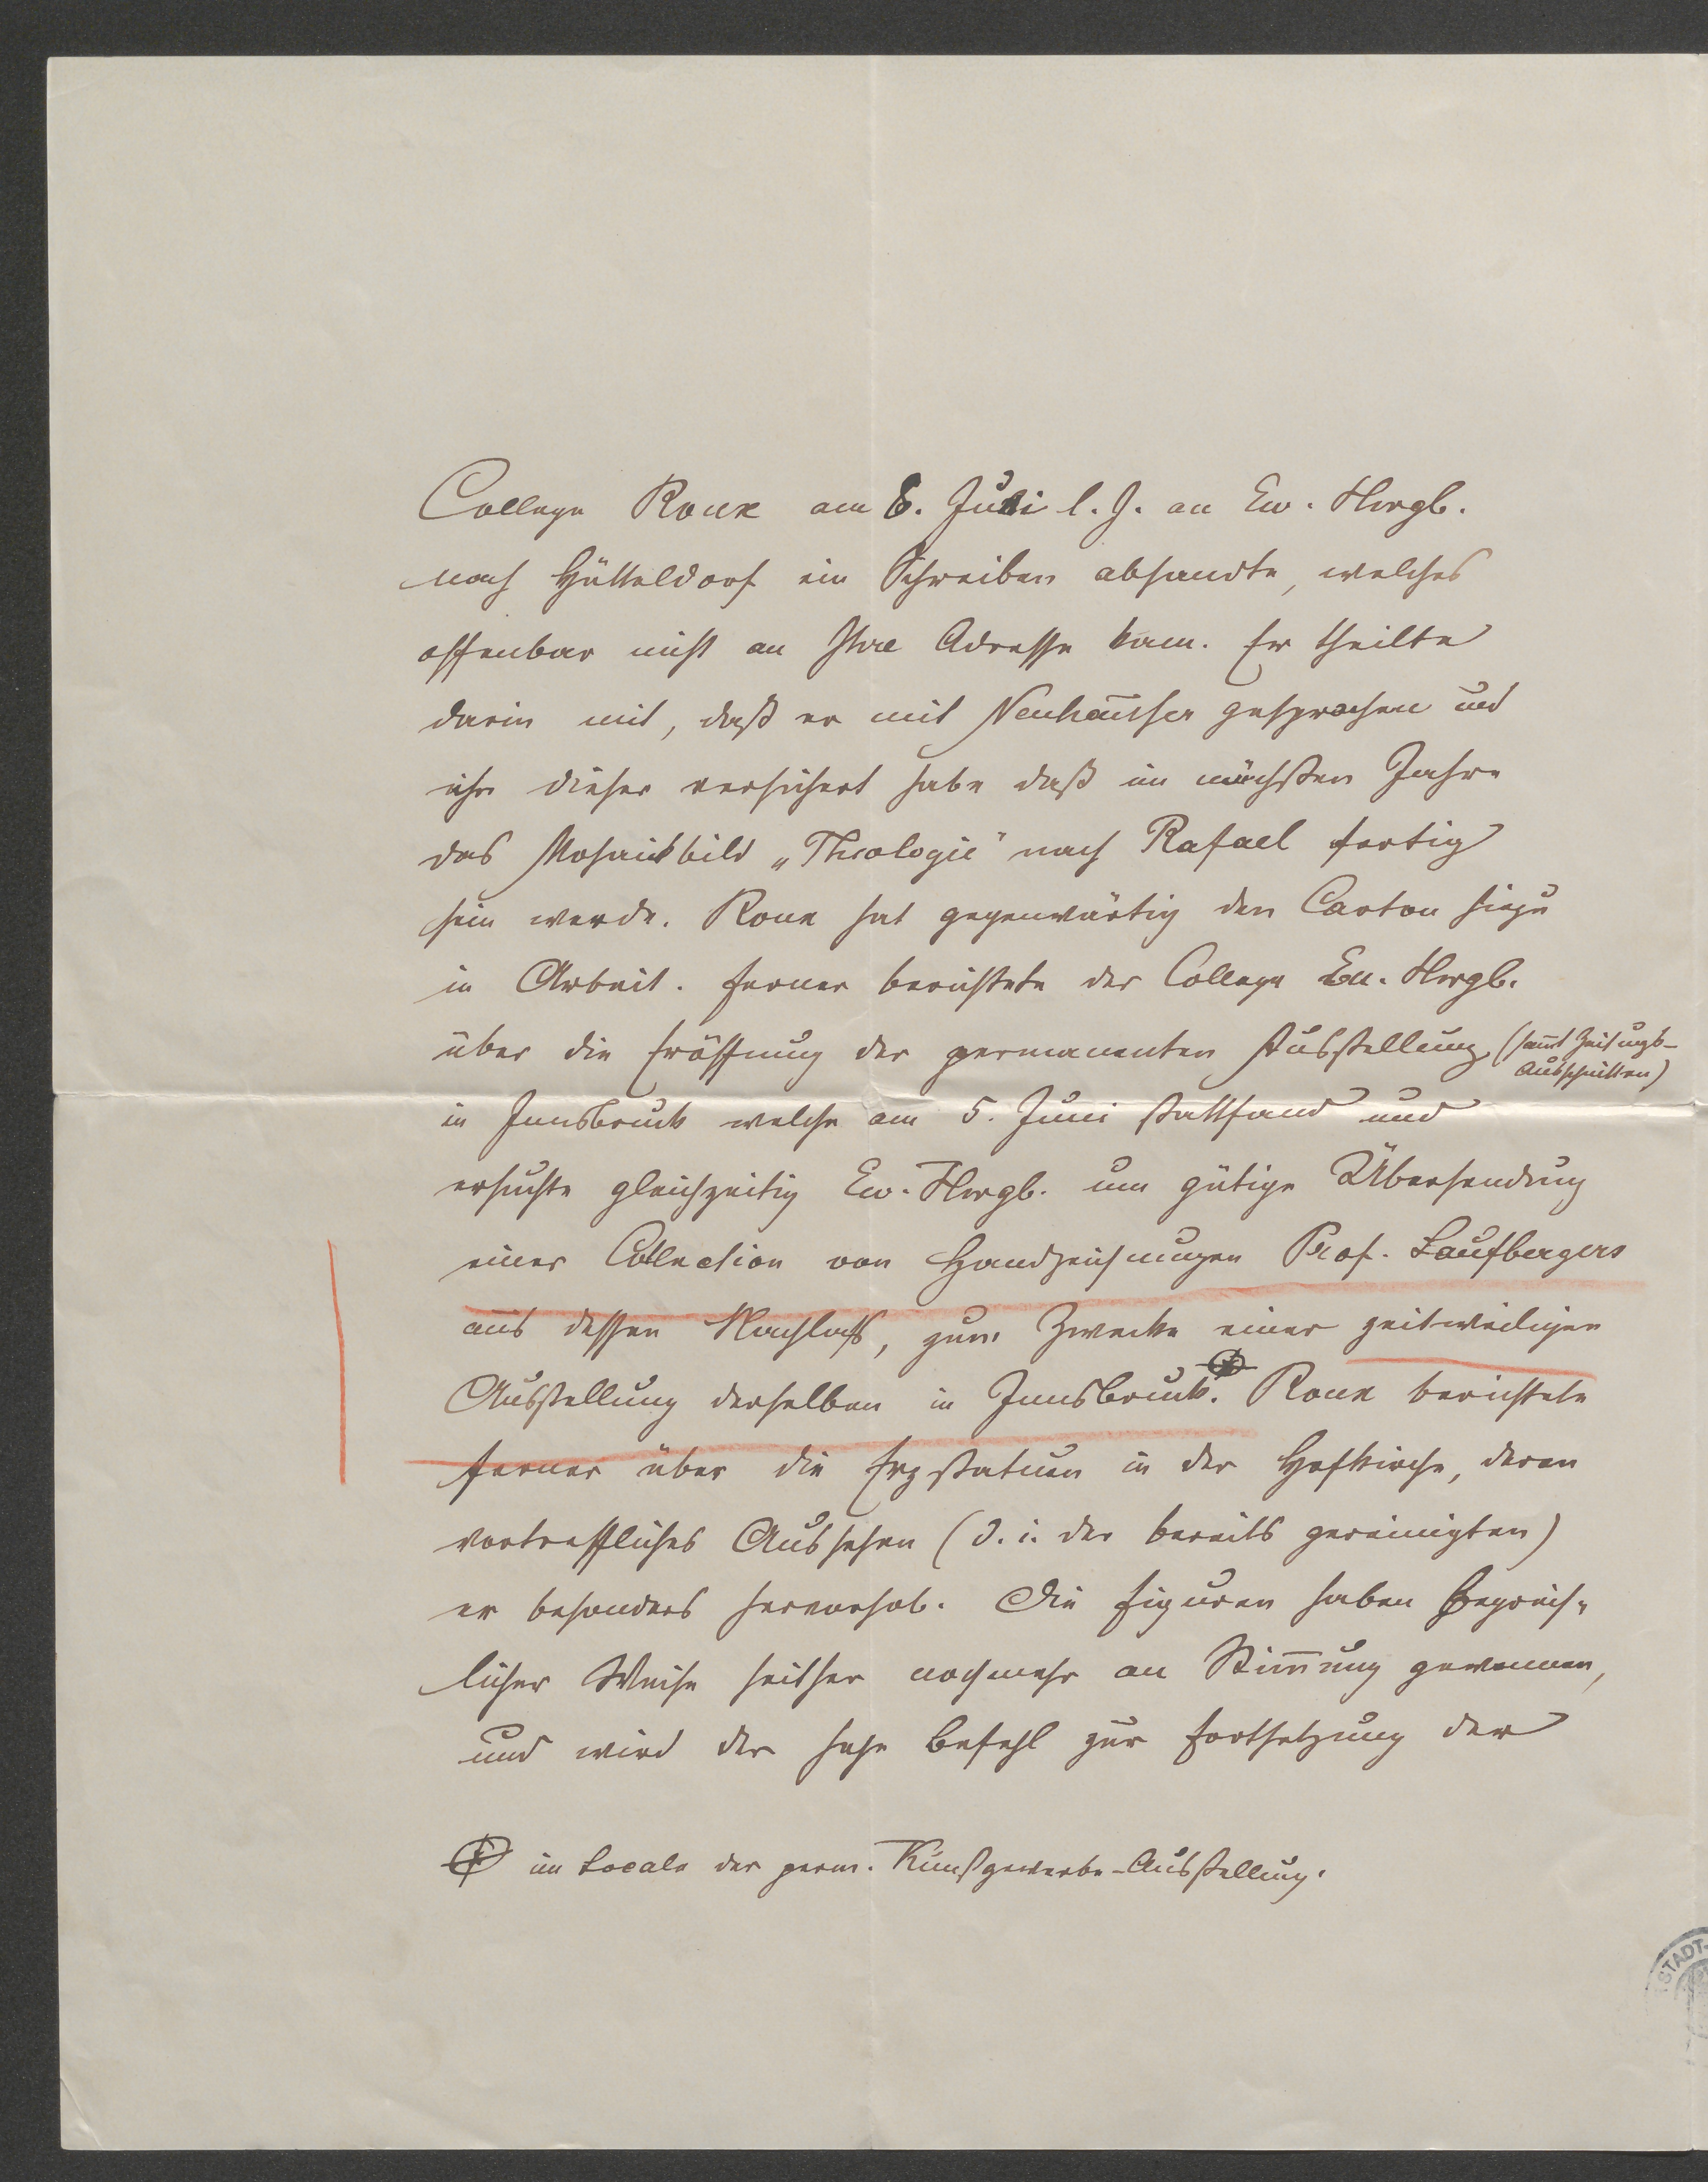 College Roux am 6. Juli l. J. an Ew. Hrrgb.
nach Hütteldorf ein Schreiben absandte, welches
offenbar nicht an Ihre Adresse kam. Er theilte
darin mit, daß er mit Neuhauser gesprochen und
ihn dieser versichert habe daß im nächsten Jahre
das Mosaikbild „Theologie" nach Rafael fertig
sein werde. Roux hat gegenwärtig den Carton hiezu
in Arbeit. Ferner berichtete der College Ew. Hrrgb.
über die Eröffnung der permanenten Ausstellung (samt Zeitungs-
Ausschnitten)
in Innsbruck welche am 5. Juni stattfand und
ersuchte gleichzeitig Ew. Hrrgb. um gütige Übersendung
einer Collection von Handzeichnungen Prof. Laufbergers
aus dessen Nachlaß, zum Zwecke einer zeitweiligen
Ausstellung derselben in Innsbruck. Roux berichtete
ferner über die Erzstatuen in der Hofkirche, deren
vortreffliches Aussehen (d. i. der bereits gereinigten)
er besonders hervorhob. Die Figuren haben begreif-
licher Weise seither noch mehr an Stimung gewonnen,
und wird der hohe Befehl zur Fortsetzung der
im Locale der perm. Kunstgewerbe-Ausstellung.
STADT-